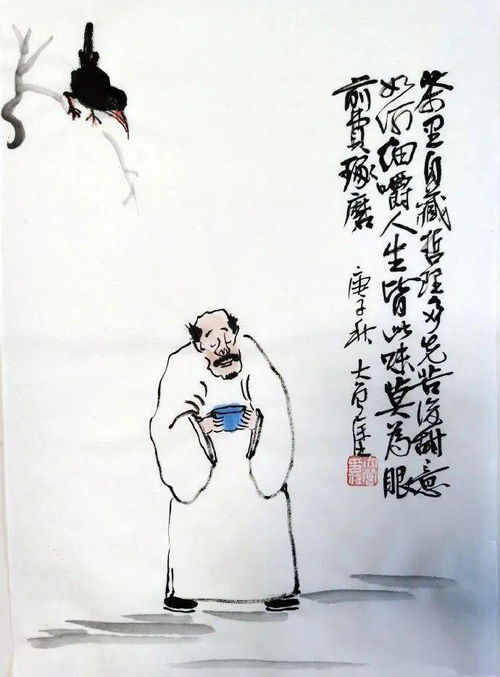 茶里自藏哲理多先苦后甜意
如何细嚼人生皆此味莫为眼
前費琢磨
庚子秋 大